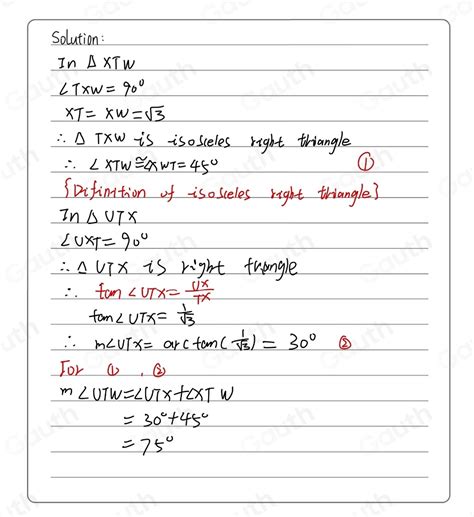 Solution:
In Δ XTW
∠TXW = 90°
XT = XW = √3
∴ Δ TXW is isosceles right triangle
∴ ∠XTW ≅ ∠XWT = 45° ①
{Difinition of isosceles right triangle}
In Δ UTX
∠UXT = 90°
∴ Δ UTX is right triangle
∴ tan∠UTX = UX/TX
tan∠UTX = 1/√3
∴ m∠UTX = arctan(1/√3) = 30° ②
For ①, ②
m∠UTW = ∠UTX + ∠XTW
= 30° + 45°
= 75°
Gauth